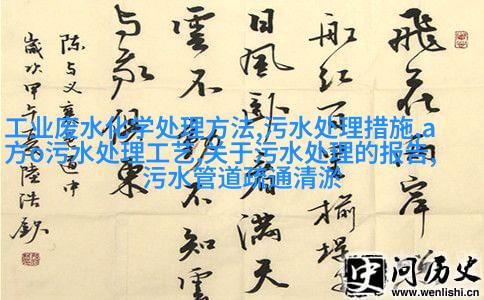 工业废水化学处理方法,污水处理措施,a
方o污水处理工艺,关于污水处理的报告,
污水管道疏通清淤
飛花兩岸
船红百里榆堤
日風卧看滿天
雲不動不知雲
与我俱東
陈与义襄邑道中
歲次甲午
陸浩鈔
史问历史
www.wenlishi.cn